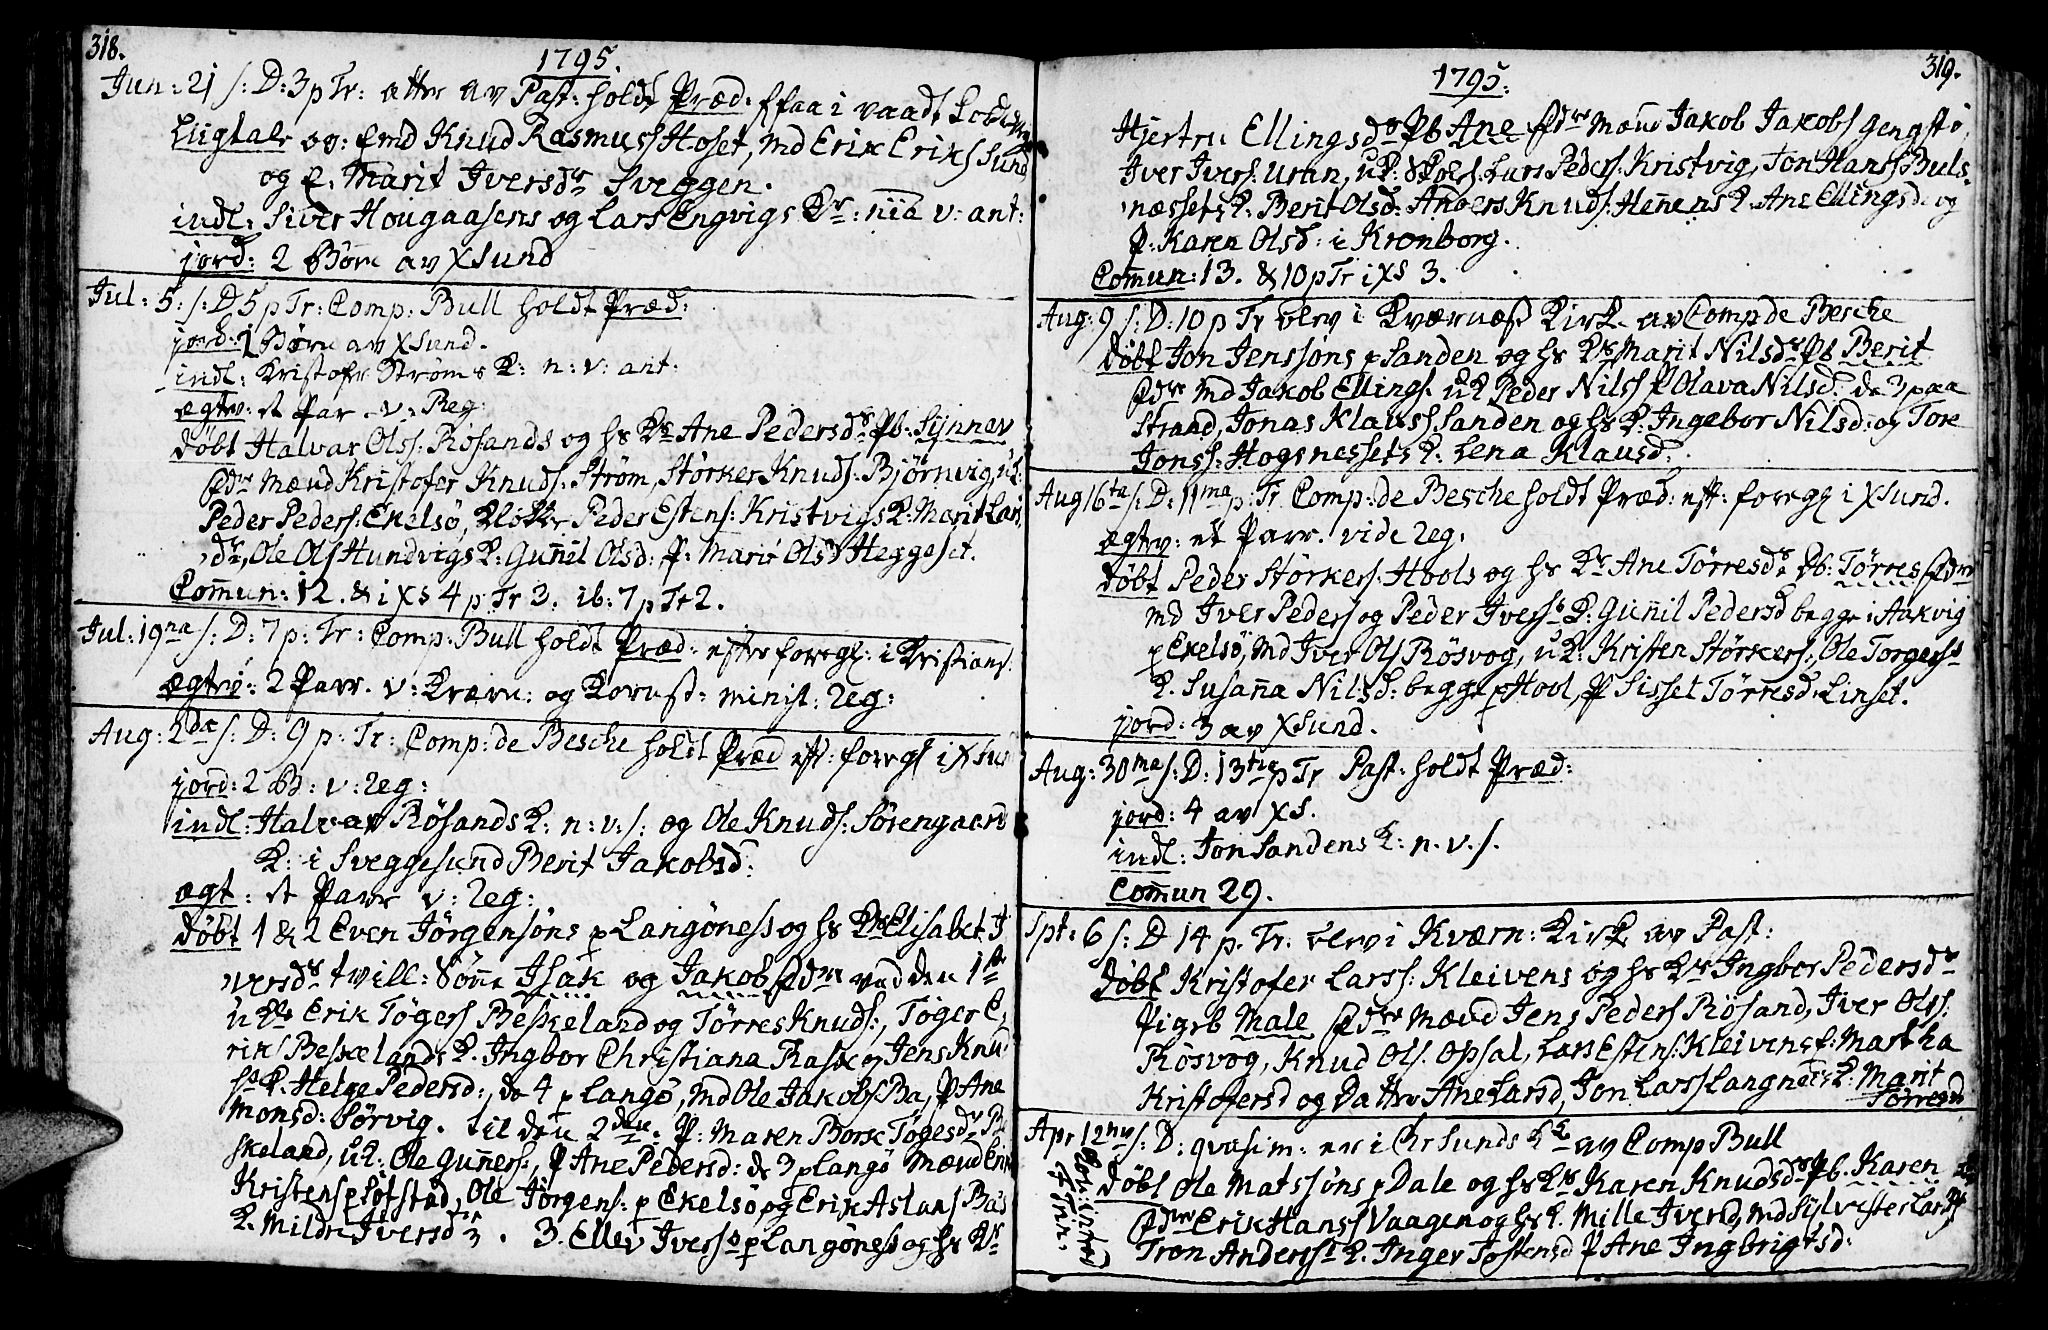 318.
1795.
Jun: 21 s: D: 3 p Tr: atter av Past: holdt Præd: ffaa i vaadt
Liigtale og: fmd Knud Rasmuss Hoset, Md Erik Eriks Sund
og P. Marit Iversdr Sveggen.
indl: Siver Hougaasens og Lars Engvigs Kr: niie v: ant:
jord: 2 Børn av XSund
Jul: 5: s: D 5 p Tr: Comp: Bull holdt Præd:
jord: 1 Børn av XSund.
indl: Kristofr Strøms K: n: v: ant:
ægtev: et Par v: Reg:
døbt Halvar Olss: Røsands og hs Kr Ane Pedersdr Pb: Synnev
Fdre Mænd Kristofer Knuds: Strøm, Størker Knuds: Bjørnvig,
Peder Peders: Ekelsø, Klokkr Peder Estens: Kristvigs K: Marit Lars
dr, Ole Ols Hundvigs K: Guñil Olsd: P: Marit Olsd Heggeset.
Com̄un: 12. & i XS 4 p Tr 3. ib: 7 p Tr 2.
Jul: 19na s: D: 7 p: Tr: Comp: Bull holdt Præd: efter foregl: i Kristians:
ægtev: 2 Parr. v: Kværn: og Korns: minist: Reg:
Aug: 2da s: D: 9 p: Tr: Comp: de Besche holdt Præd eft: foregl i XSun
jord: 2 B: v: Reg:
indl: Halvar Røsands K: n: v: s: og Ole Knuds: Sørengaard
K: i Sveggesund Berit Jakobsd:
ægt: et Parr v: Reg:
døbt 1 & 2 Even Jørgensøns p Langøness og hs Kr Elisabet I
versdr tvill: Søn̄e Isak og Jakob Fdre ved den 1te
u Kr Erik Tøgers Beskeland og Tørres Knuds:, Tøger E,
riks Beskelands K. Ingbor Christiana Rask og Jens Knud
ss K. Helge Pedersd:, de 4 p Langø, Md Ole Jakobs Ba, P Ane
Monsd: Børvig. til den 2den: P: Maren Borsc Tøgesdr Be
skeland, uK: Ole Guñers:, P Ane Pedersd: de 3 p Langø Mænd Erik
Kristens p Løfstad, Ole Jørgens: p Ekelsø og Erik Aslaks Bas
K. Mildri Iversdr. 3. Ellev Iverss p Langøness og hs Kr
319.
1795.
Hjertru Ellingsdr Pb Ane Fdre Mænd Jakob Jakobs Gengstø,
Iver Ivers: Uran, uK: Lars Peders: Kristvig, Jon Hanss Buls-
næssets K. Berit Olsd: Anders Knuds: Henens K. Ane Ellingsd: og
P: Karen Olsd: i Kronborg.
Com̄un: 13. & 10 p Tr i XS 3.
Aug: 9 s: D: 10 p Tr blev i Kværnæss Kirk. av Comp de Besche
døbt Jon Jenssøns p Sanden og hs Kr Marit Nilsdr Pb Berit
Fdre Md Jakob Ellings: uK Peder Nilss P Olava Nilsd: de 3 paa
Strand, Jonas Klauss Sanden og hs K. Ingebor Nilsd: og Tore
Jonss: Hogsnessets K. Lena Klausd:
Aug 16ta s: D: 11ma p: Tr Comp: de Besche holdt Præd: eft: foregl i XSund.
ægtev: et Parr. vide Reg:
døbt Peder Størkers: Hools og hs Kr Ane Tørresdr Pb: Tørres Fdre
Md Iver Peders og Peder Iverss K: Guñil Pedersd begge i Aakvig
p Ekelsø, Md Iver Ols Røsvog, uK: Kristen Størkers:, Ole Torgerss
K. Susan̄a Nilsd: begge p Hool, P Sisset Tørresd: Linset.
jord: 3 av XSund.
Aug: 30ma s: D: 13tia p Tr Past: holdt Præd:
jord: 4 av XS.
indl: Jon Sandens K: n. v. s.
Com̄un 29.
Spt: 6 s: D 14 p. Tr: blev i Kværn: Kirk av Past:
døbt Kristofer Larss: Kleivens og hs Kr Ingbor Pedersdr
Pigeb Male Fdre Mænd Jens Peders Røsand, Iver Olss:
Røsvog, Knud Ols: Opsal, Lars Estens: Kleivens f: Martha
Kristofersd og Dattr Ane Larsd, Jon Larss Langnes K: Marit
Tørresd
Apr 12ma s: D: qvasim: er i Chr Sunds Kk av Comp Bull
døbt Ole Matssøns p Dale og hs Kr Karen Knudsdr Pb. Karen
Fdre Erik Hanss Vaagen og hs K. Mille Iversd, Md Sylvester Larss
Tron Anderss K. Inger Jostensd P Ane Ingbrigtsd: